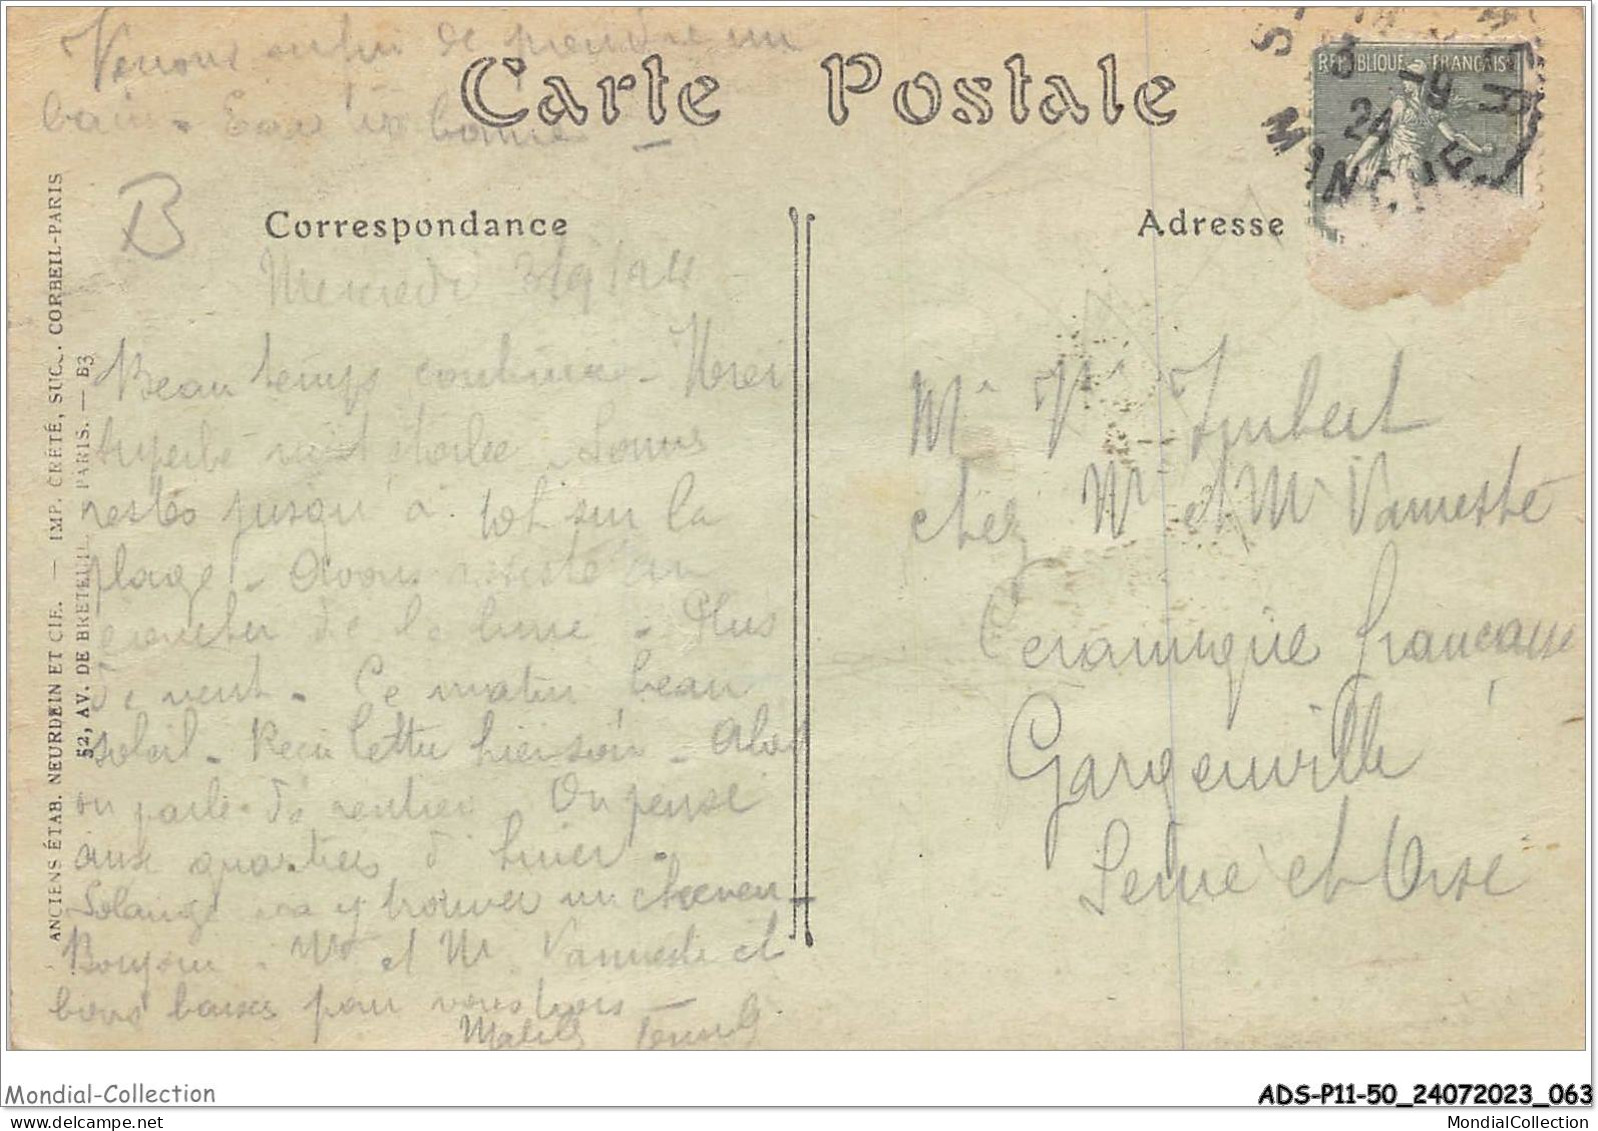 Venons enfin de prendre un
bain. Eau bonne
Carte Postale
REPUBLIQUE FRANÇAISE
3 -9
24
MANCHE
B
Correspondance
Adresse
Mercredi 3/9/24
Beau temps continue - Hier
superbe nuit étoilée. Sommes
restés jusqu'à 10h sur la
plage. Avons assisté au
coucher de la lune. Plus
de vent. Ce matin beau
soleil. Reçu lettre hier soir.
on parle de rentrer. On pense
aux quartiers d'hiver.
Solange va y trouver un cheveu.
Bonjour. Me et Mr Vanneste et
bons baisers pour vous tous
Mr Vr Imbert
chez Mr et Me Vanneste
Céramique française
Gargenville
Seine et Oise
ANCIENS ÉTAB. NEURDEIN ET CIE. — IMP. CRETÉ, SUCC. CORBEIL-PARIS
52, AV. DE BRETEUIL, PARIS. — B3
Mondial-Collection
ADS-P11-50_24072023_063
www.delcampe.net
MondialCollection